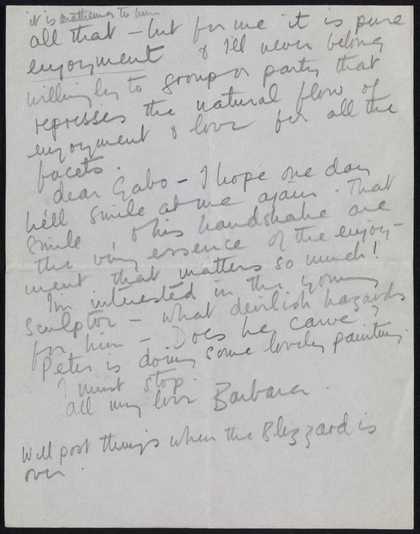 it is to him
all that – but for me it is pure
enjoyment & I'll never belong
willingly to group or party that
represses the natural flow of
enjoyment & love for all the
facets.
Dear Gabo – I hope one day
he'll smile at me again. That
smile, & his handshake are
the very essence of the enjoy-
ment that matters so much!
I'm interested in the young
sculptor – what devilish hazards
for him – Does he carve?
Peter is doing some lovely painting.
I must stop.
all my love Barbara.
Will post things when the Blizzard is
over.